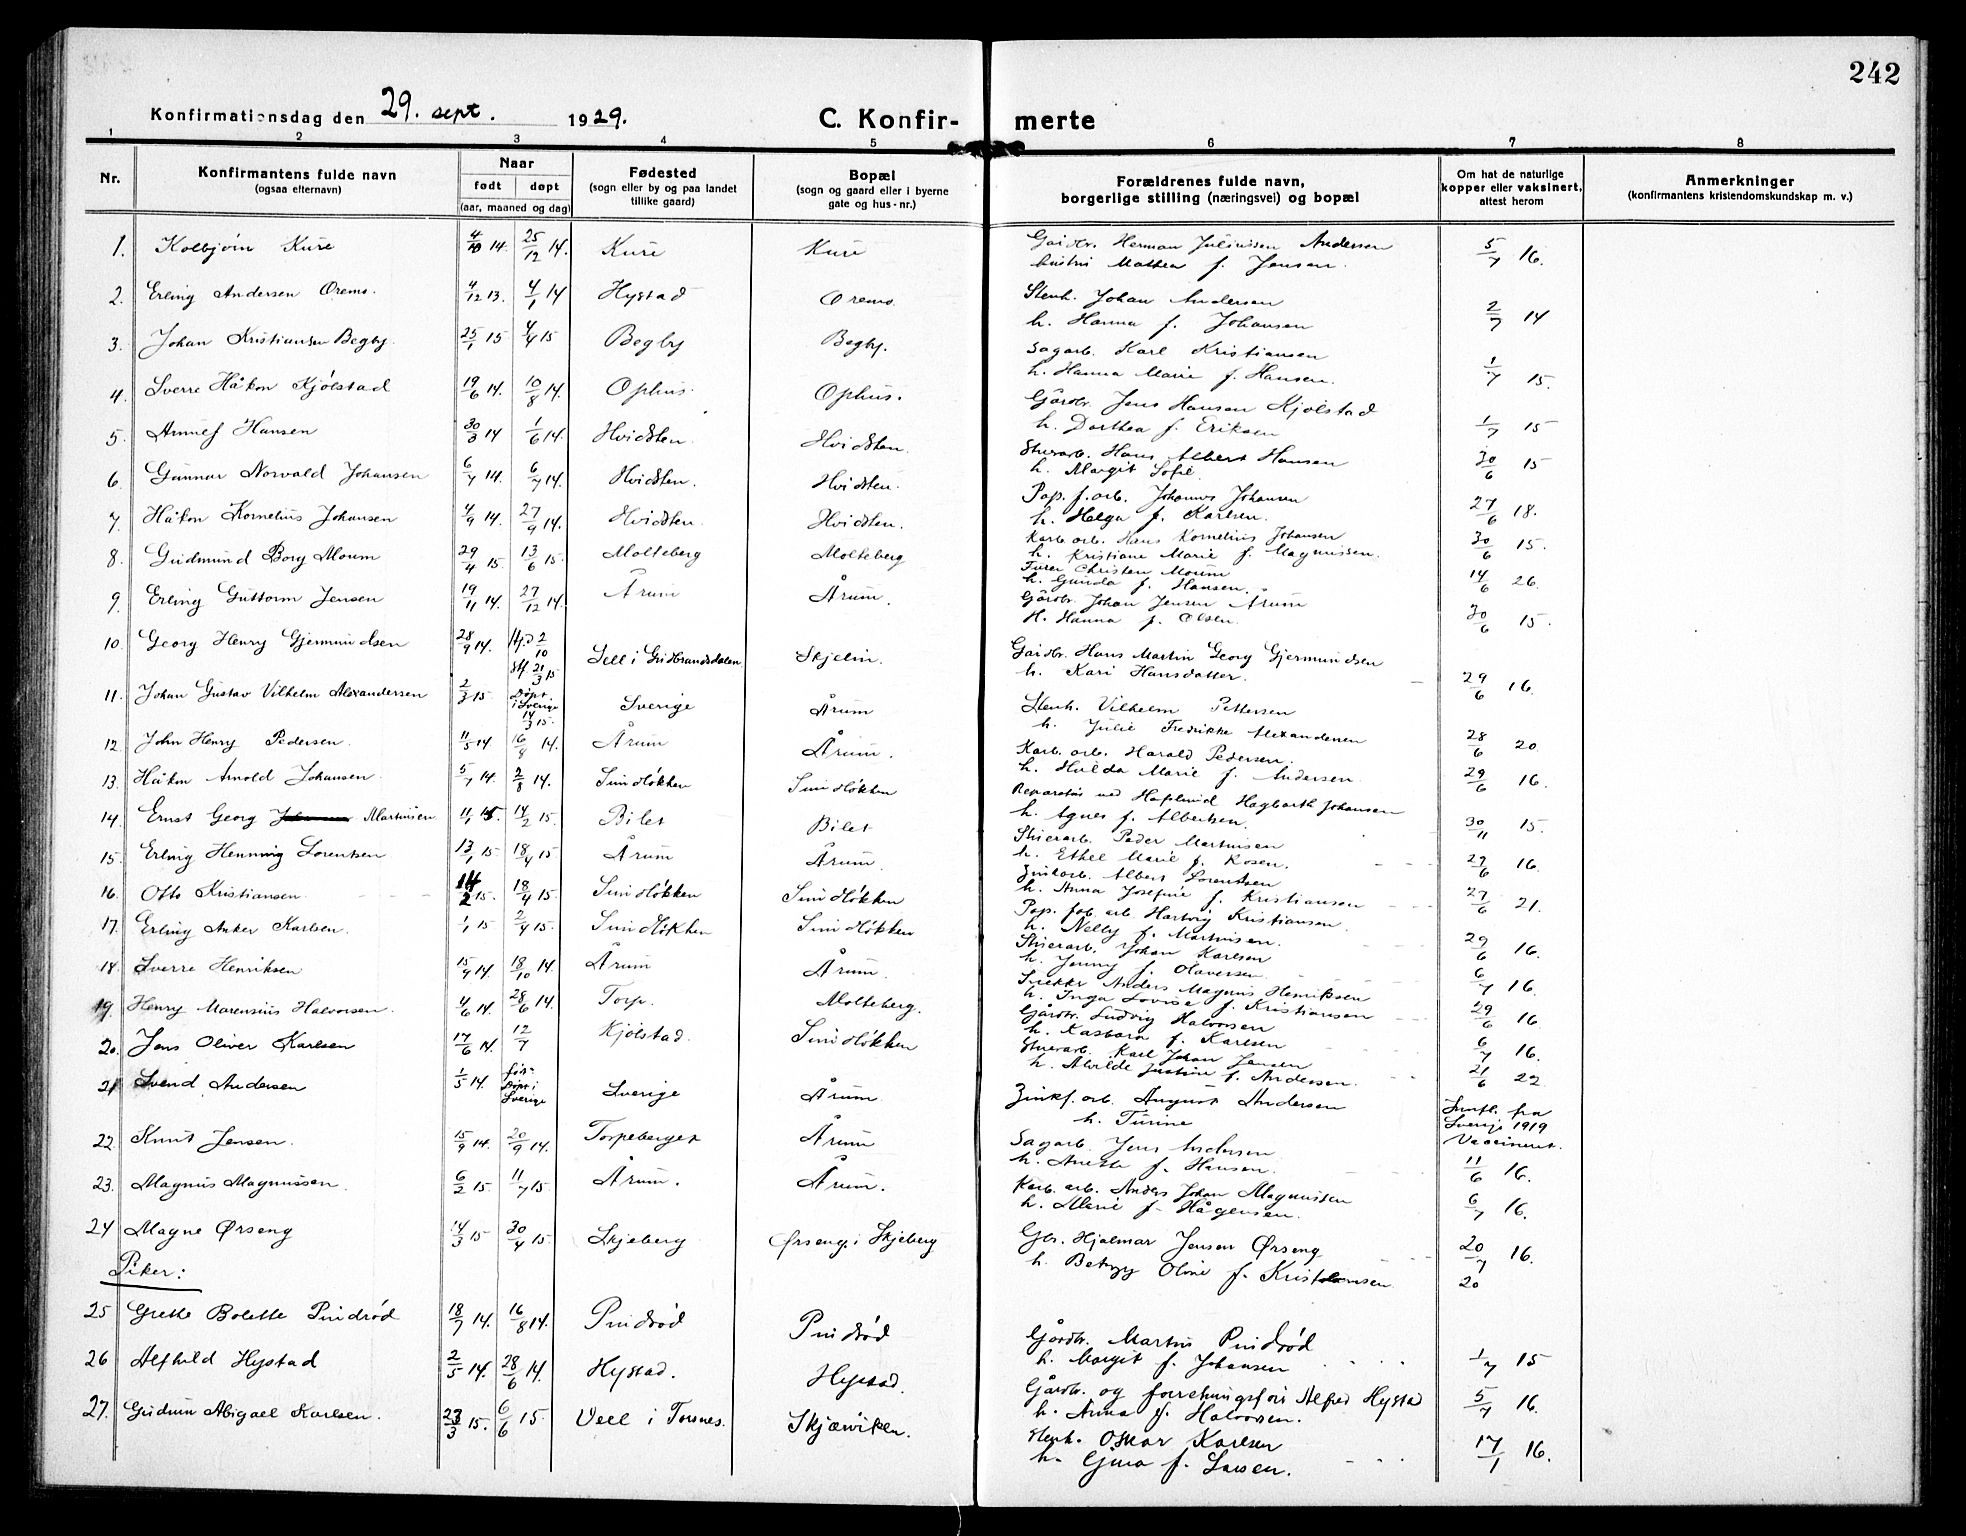 242
Konfirmationsdag den 29. sept. 1929. C. Konfir- merte
1 2 3 4 5 6 7 8
Nr. Konfirmantens fulde navn (ogsaa efternavn) Naar født døpt (aar, maaned og dag) Fødested (sogn eller by og paa landet tillike gaard) Bopæl (sogn og gaard eller i byerne gate og hus-nr.) Forældrenes fulde navn, borgerlige stilling (næringsvei) og bopæl Om hat de naturlige kopper eller vaksinert, attest herom Anmerkninger (konfirmantens kristendomskundskap m. v.)
1. Kolbjörn Kure 14. 25/12 14. Kure Kure Herman Juliussen Andersen 5/7 16.
Mathea f. Jensen.
2. Erling Andersen Oremo. 4/12 13. 4/1 14 Hystad Oremo. Stenh. Johan Andersen 2/7 14
h. Hanna f. Johansen
3. Johan Kristiansen Begby. 25/1 15 4/4 15 Begby Begby. Sagarb. Karl Kristiansen 1/7 15.
h. Hanna Marie f. Hansen.
4. Sverre Håkon Kjölstad 19/6 14. 10/8 14. Ophus. Ophus. Gårdbr. Jens Hansen Kjölstad 1/7 15
h. Dorthea f. Eriksen
5. Hansen 30/3 14 1/6 14. Hvidsten. Hvidsten. Hans Albert Hansen 30/6 15
h. Margit Sofie
6. Gunnar Norvald Johansen 6/7 14. 6/7 14. Hvidsten. Hvidsten. Pap. f. arb. Johannes Johansen 27/6 18.
h. Helga f. Karlsen.
7. Håkon Kornelius Johansen 4/9 14. 27/9 14. Hvidsten. Hvidsten. Karb. arb. Hans Kornelius Johansen 30/6 15.
h. Kristiane Marie f. Magnussen.
8. Gudmund Borg Moum 29/4 15. 13/6 15. Molteberg Molteberg Christen Moum 14/6 26.
h. Gunda f. Hansen.
9. Erling Guttorm Jensen 19/11 14. 27/12 14. Årum Årum. Gårdbr. Johan Jensen Årum 30/6 15.
H. Hanna f. Olsen.
10. Georg Henry Gjermundsen 28/9 14. Hjd 2/10 St. 21/3 15 Sell i Gudbrandsdalen Skjelin. Hans Martin Georg Gjermundsen 29/6 16.
h. Kari Hansdatter.
11. Johan Gustav Vilhelm Alexandersen 2/3 15. Döpt i Sverige 14/3 15. Sverige Årum Stenh. Vilhelm Pettersen 28/6 20.
h. Julie Fredrikke Alexandersen
12. John Henry Pedersen. 11/5 14. 16/8 14. Årum Årum. Karb. arb. Harald Pedersen. 29/6 16.
h. Hulda Marie f. Andersen.
13. Håkon Arnold Johansen. 5/7 14. 2/8 14. Sundlökken Sundlökken Reparatör ved Hafslund Hagbarth Johansen 30/11 15.
h. Agnes f. Albertsen.
14. Ernst Georg Martinsen 15. 14/2 15. Bilet Bilet Peder Martinsen 29/6 16.
h. Ethel Marie f. Rosen.
15. Erling Henning Lorentsen 13/1 15 18/4 15 Årum Årum. Zinkarb. Albert Lorentsen 27/6 21.
h. Anna Josefine f. Kristiansen
16. Otto Kristiansen 14/2 15. 18/4 15. Sundlökken Sundlökken Pap. fab. arb. Hartvig Kristiansen. 29/6 16.
h. Nelly f. Martinsen.
17. Erling Anker Karlsen. 1/1 15 2/4 15. Sundlökken Sundlökken Johan Karlsen 6/7 16.
h. Jenny f. Olaversen
18. Sverre Henriksen 15/9 14. 18/10 14. Årum Årum. Snekker Anders Magnus Henriksen 29/6 16
h. Inga Lovise f. Kristiansen
19. Henry Marensius Halvorsen. 4/6 14. 28/6 14. Torp. Molteberg. Gårdbr. Ludvig Halvorsen 6/7 16.
h. Kasbara f. Karlsen
20. Jens Oliver Karlsen 17/6 14. 12/7 Kjölstad. Sundlökken Karl Johan Jensen 21/6 22
h. Alvilde Justine f. Andersen.
21 Svend Andersen 1/5 14. Döpt i Sverige Sverige Årum. Zinkf. arb. August Andersen Innfl. fra Sverige 1919 Vaccineret.
h. Turine
22. Knut Jensen. 15/9 14. 20/9 14. Torpeberget Årum Sagarb. Jens Andersen 11/6 16.
h. Anette f. Hansen.
23. Magnus Magnussen. 6/2 15. 11/7 15. Årum. Årum. Karb. arb. Anders Johan Magnussen 6/7 16.
h. Marie f. Hågensen.
24 Magne Ørseng 14/3 15 30/4 15. Skjeberg Ørseng i Skjeberg Gbr. Hjalmar Jensen Ørseng 20/7 16.
h. Betzy Oline f. Kristiansen 20
Piker:
25 Grethe Bolette Pindröd 18/7 14. 16/8 14. Pindröd Pindröd Gårdbr. Martin Pindröd 1/7 15
h. Margit f. Johansen
26 Alfhild Hystad 2/5 14. 28/6 14. Hystad. Hystad. Gårdbr. og forretningsför. Alfred Hystad 5/7 16.
h. Anna f. Halvorsen.
27. Gudrun Abigael Karlsen. 23/3 15. 6/6 15. Vell i Torsnes. Skjærviken. Stenh. Oskar Karlsen 17/1 16.
h. Gina f. Larsen.